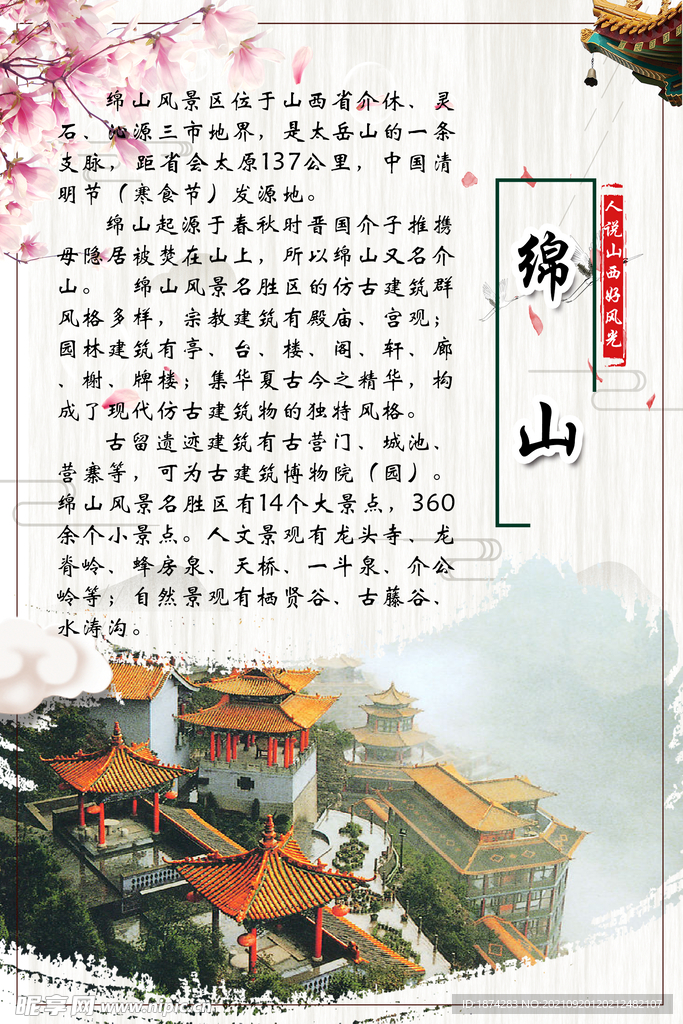 绵山风景区位于山西省介休、灵
石、沁源三市地界，是太岳山的一条
支脉，距省会太原137公里，中国清
明节（寒食节）发源地。
绵山起源于春秋时晋国介子推携
母隐居被焚在山上，所以绵山又名介
山。 绵山风景名胜区的仿古建筑群
风格多样，宗教建筑有殿庙、宫观；
园林建筑有亭、台、楼、阁、轩、廊
、榭、牌楼；集华夏古今之精华，构
成了现代仿古建筑物的独特风格。
古留遗迹建筑有古营门、城池、
营寨等，可为古建筑博物院（园）。
绵山风景名胜区有14个大景点，360
余个小景点。人文景观有龙头寺、龙
脊岭、蜂房泉、天桥、一斗泉、介公
岭等；自然景观有栖贤谷、古藤谷、
水涛沟。
绵山
人说山西好风光
昵享网 www.nipic.cn
ID:1874283 NO:20210920120212482107